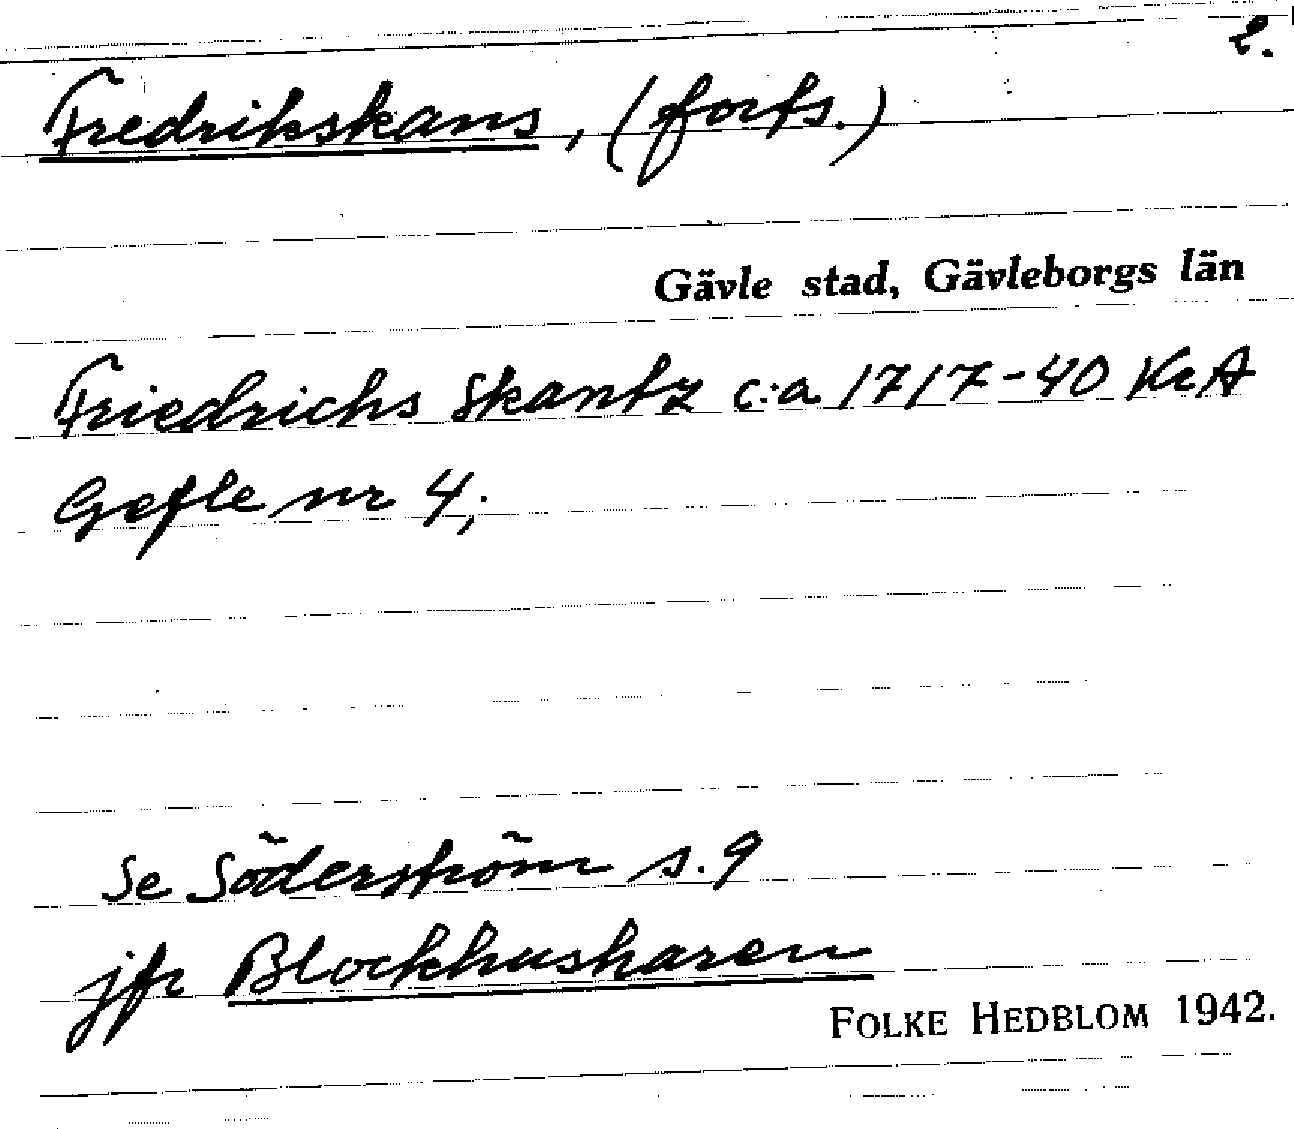 2.
Fredrikskans, (forts.)
Gävle stad, Gävleborgs län
Friedrichs Skantz c:a 1717-40 KrA
Gefle nr 4;
Se Söderström s. 9
jfr Blockhusharen
FOLKE HEDBLOM 1942.